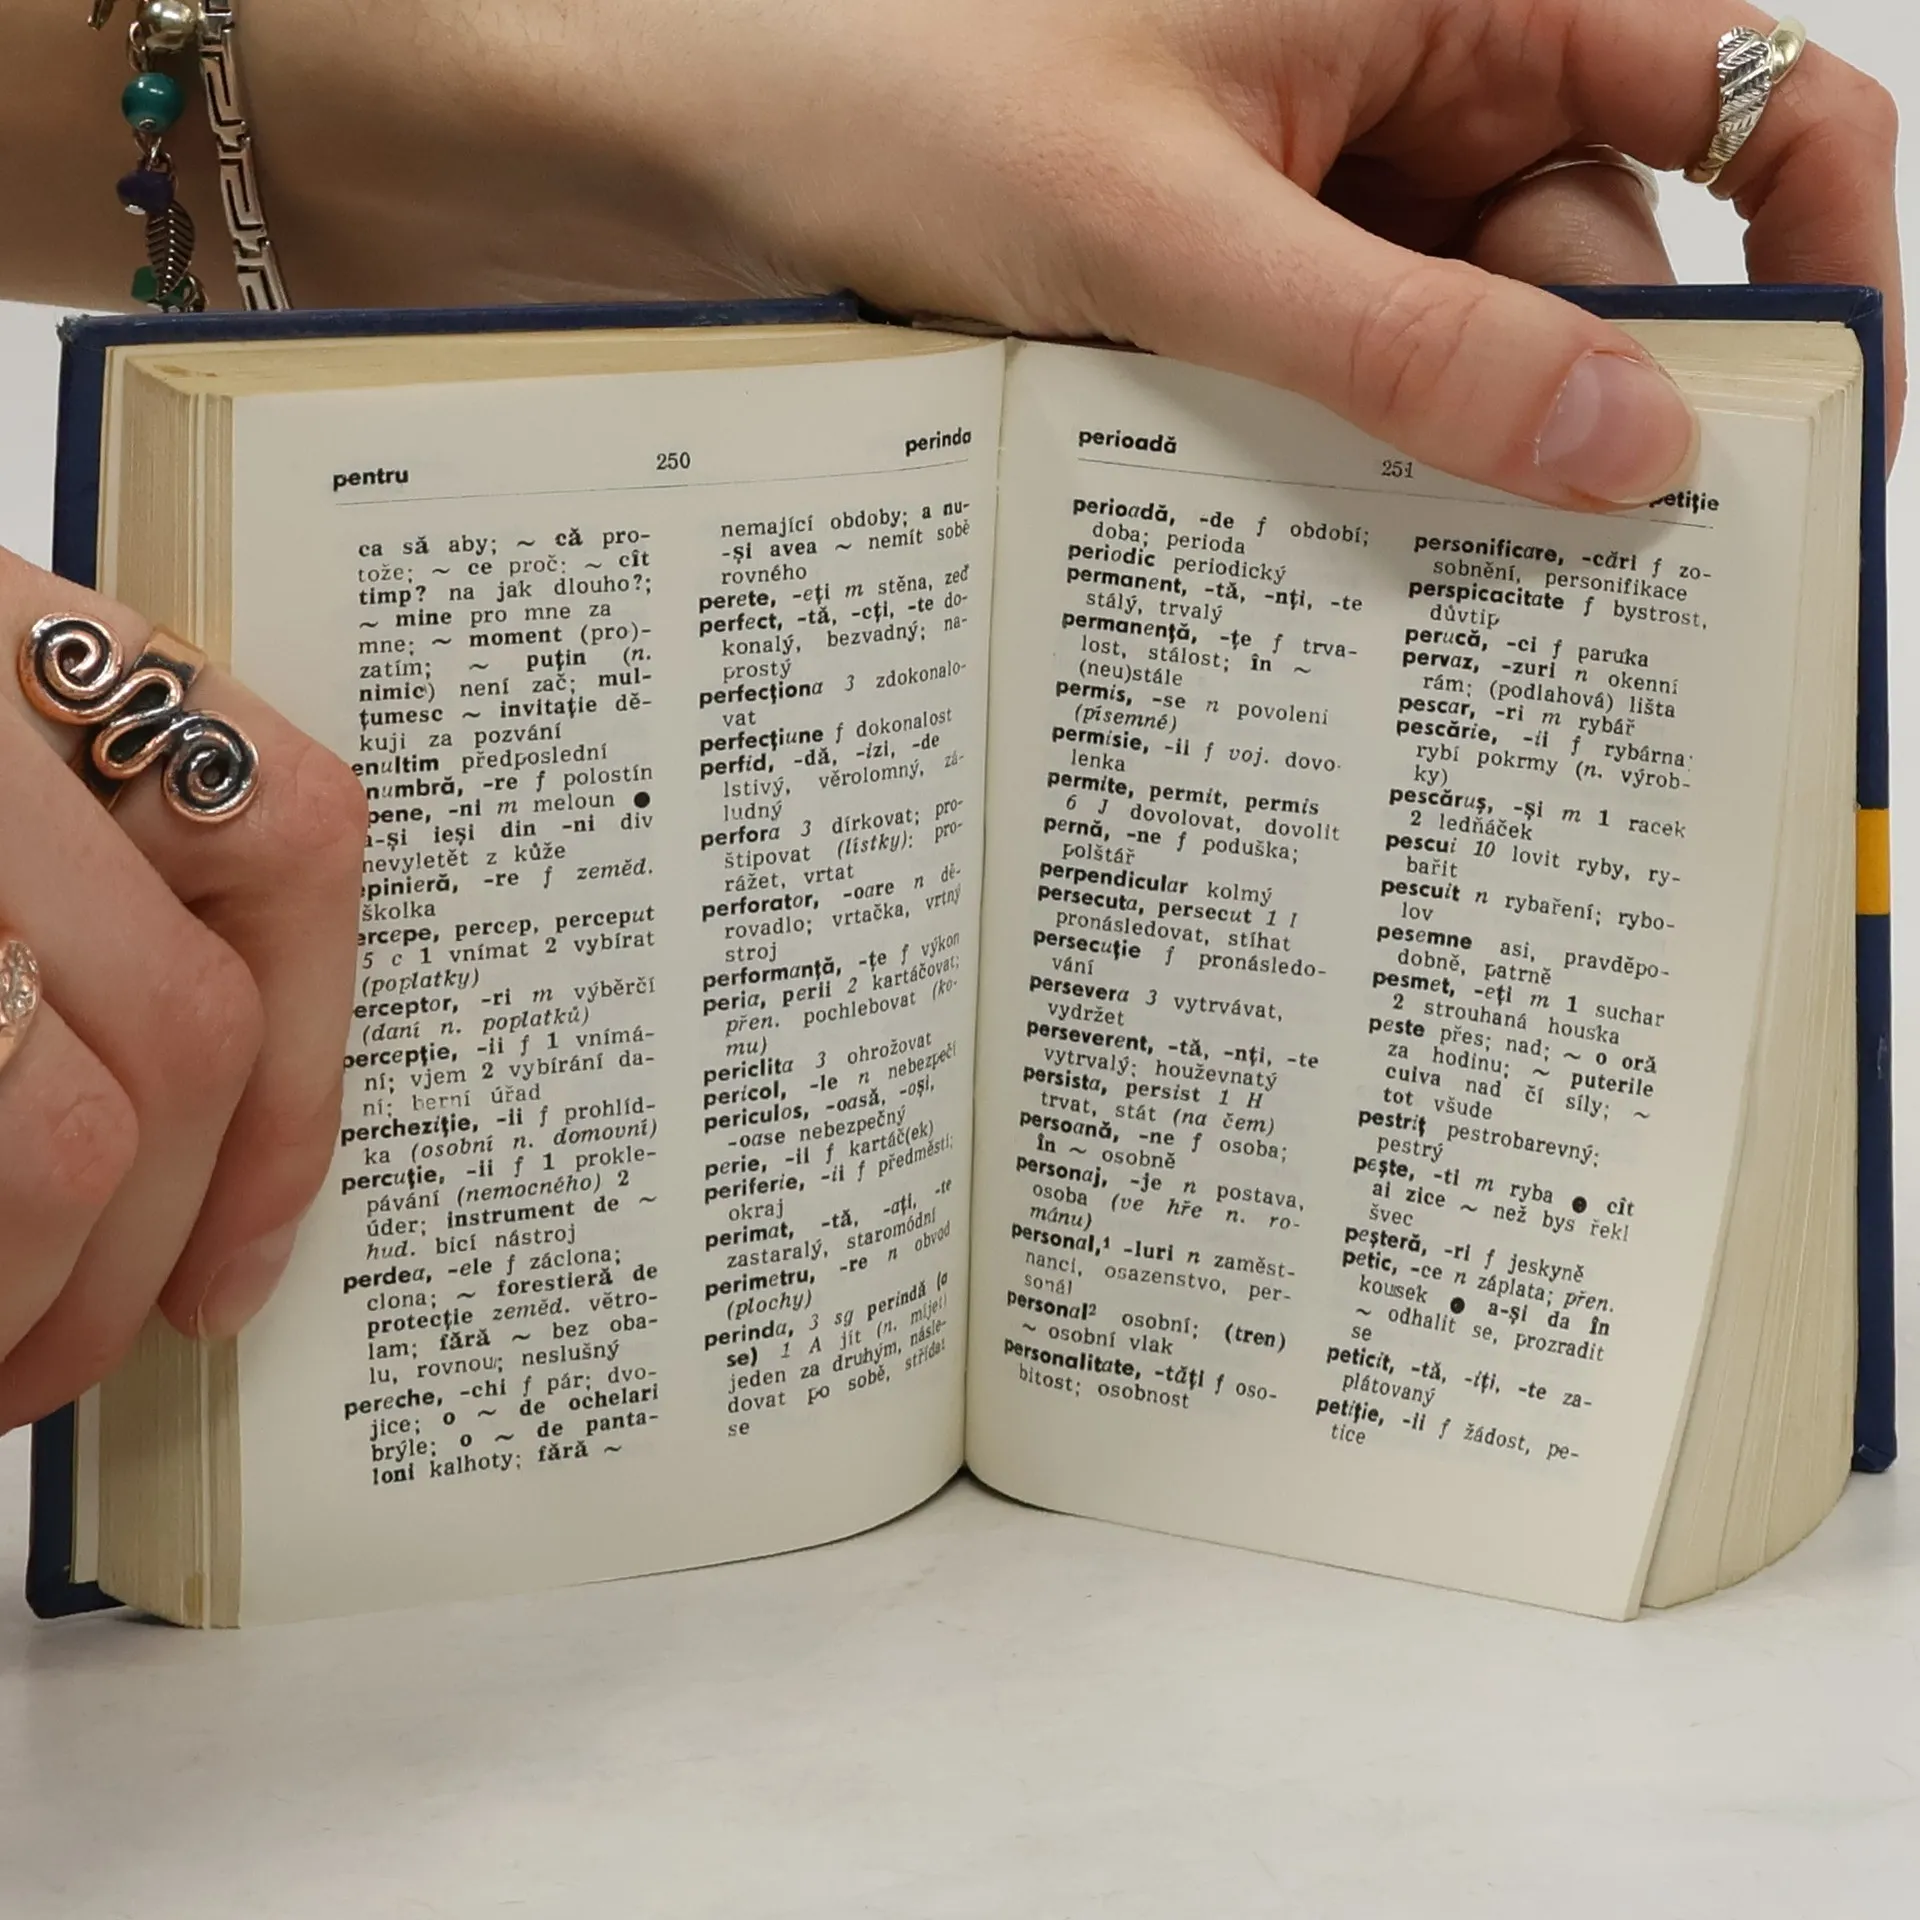 pentru 250 perinda
ca să aby; ~ că pro-
tože; ~ ce proč; ~ cît
timp? na jak dlouho?;
~ mine pro mne za
mne; ~ moment (pro)-
zatím; ~ puțin (n.
nimic) není zač; mul-
țumesc ~ invitație dě-
kuji za pozvání
enultim předposlední
numbră, -re f polostín
pene, -ni m meloun ●
a-și ieși din -ni div
nevyletět z kůže
pinieră, -re f zeměd.
školka
ercepe, percep, perceput
5 c 1 vnímat 2 vybírat
(poplatky)
erceptor, -ri m výběrčí
(daní n. poplatků)
percepție, -ii f 1 vnímá-
ní; vjem 2 vybírání da-
ní; berní úřad
percheziție, -ii f prohlíd-
ka (osobní n. domovní)
percuție, -ii f 1 prokle-
pávání (nemocného) 2
úder; instrument de ~
hud. bicí nástroj
perdea, -ele f záclona;
clona; ~ forestieră de
protecție zeměd. větro-
lam; fără ~ bez oba-
lu, rovnou; neslušný
pereche, -chi f pár; dvo-
jice; o ~ de ochelari
brýle; o ~ de panta-
loni kalhoty; fără ~
nemající obdoby; a nu-
-și avea ~ nemít sobě
rovného
perete, -eți m stěna, zeď
perfect, -tă, -cți, -te do-
konalý, bezvadný; na-
prostý
perfecționa 3 zdokonalo-
vat
perfecțiune f dokonalost
perfid, -dă, -izi, -de
lstivý, věrolomný, zá-
ludný
perfora 3 dírkovat; pro-
štipovat (lístky); pro-
rážet, vrtat
perforator, -oare n dě-
rovadlo; vrtačka, vrtný
stroj
performanță, -țe f výkon
peria, perii 2 kartáčovat;
přen. pochlebovat (ko-
mu)
periclita 3 ohrožovat
pericol, -le n nebezpečí
periculos, -oasă, -oși,
-oase nebezpečný
perie, -ii f kartáč(ek)
periferie, -ii f předměstí;
okraj
perimat, -tă, -ați, -te
zastaralý, staromódní
perimetru, -re n obvod
(plochy)
perinda, 3 sg perindă (a
se) 1 A jít (n. míjet)
jeden za druhým, násle-
dovat po sobě, střídat
se
perioadă 251 petiție
perioadă, -de f období;
doba; perioda
periodic periodický
permanent, -tă, -nți, -te
stálý, trvalý
permanență, -țe f trva-
lost, stálost; în ~
(neu)stále
permis, -se n povolení
(písemné)
permisie, -ii f voj. dovo-
lenka
permite, permit, permis
6 J dovolovat, dovolit
pernă, -ne f poduška;
polštář
perpendicular kolmý
persecuta, persecut 1 I
pronásledovat, stíhat
persecuție f pronásledo-
vání
persevera 3 vytrvávat,
vydržet
perseverent, -tă, -nți, -te
vytrvalý; houževnatý
persista, persist 1 H
trvat, stát (na čem)
persoană, -ne f osoba;
în ~ osobně
personaj, -je n postava,
osoba (ve hře n. ro-
mánu)
personal,¹ -luri n zaměst-
nanci, osazenstvo, per-
sonál
personal² osobní; (tren)
~ osobní vlak
personalitate, -tăți f oso-
bitost; osobnost
personificare, -cări f zo-
sobnění, personifikace
perspicacitate f bystrost,
důvtip
perucă, -ci f paruka
pervaz, -zuri n okenní
rám; (podlahová) lišta
pescar, -ri m rybář
pescărie, -ii f rybárna;
rybí pokrmy (n. výrob-
ky)
pescăruș, -și m 1 racek
2 ledňáček
pescui 10 lovit ryby, ry-
bařit
pescuit n rybaření; rybo-
lov
pesemne asi, pravděpo-
dobně, patrně
pesmet, -eți m 1 suchar
2 strouhaná houska
peste přes; nad; ~ o oră
za hodinu; ~ puterile
cuiva nad čí síly; ~
tot všude
pestriț pestrobarevný;
pestrý
pește, -ti m ryba ● cît
ai zice ~ než bys řekl
švec
peșteră, -ri f jeskyně
petic, -ce n záplata; přen.
kousek ● a-și da în
~ odhalit se, prozradit
se
peticit, -tă, -iți, -te za-
plátovaný
petiție, -ii f žádost, pe-
tice